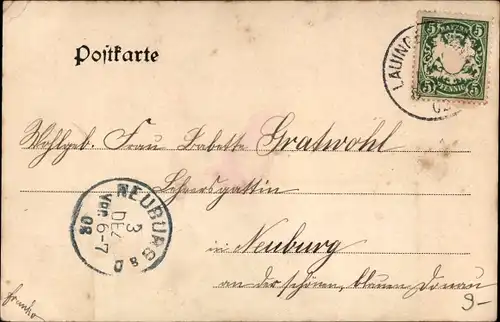 Postkarte
LAUING
02
BAYERN
5 5
PFENNIG
Wohlgeb. Frau Babette Gratwohl
Lehrersgattin
in Neuburg
an der schönen, blauen Donau
NEUBURG a D
3
DEZ
VOR. 6-7
02
franko
9-